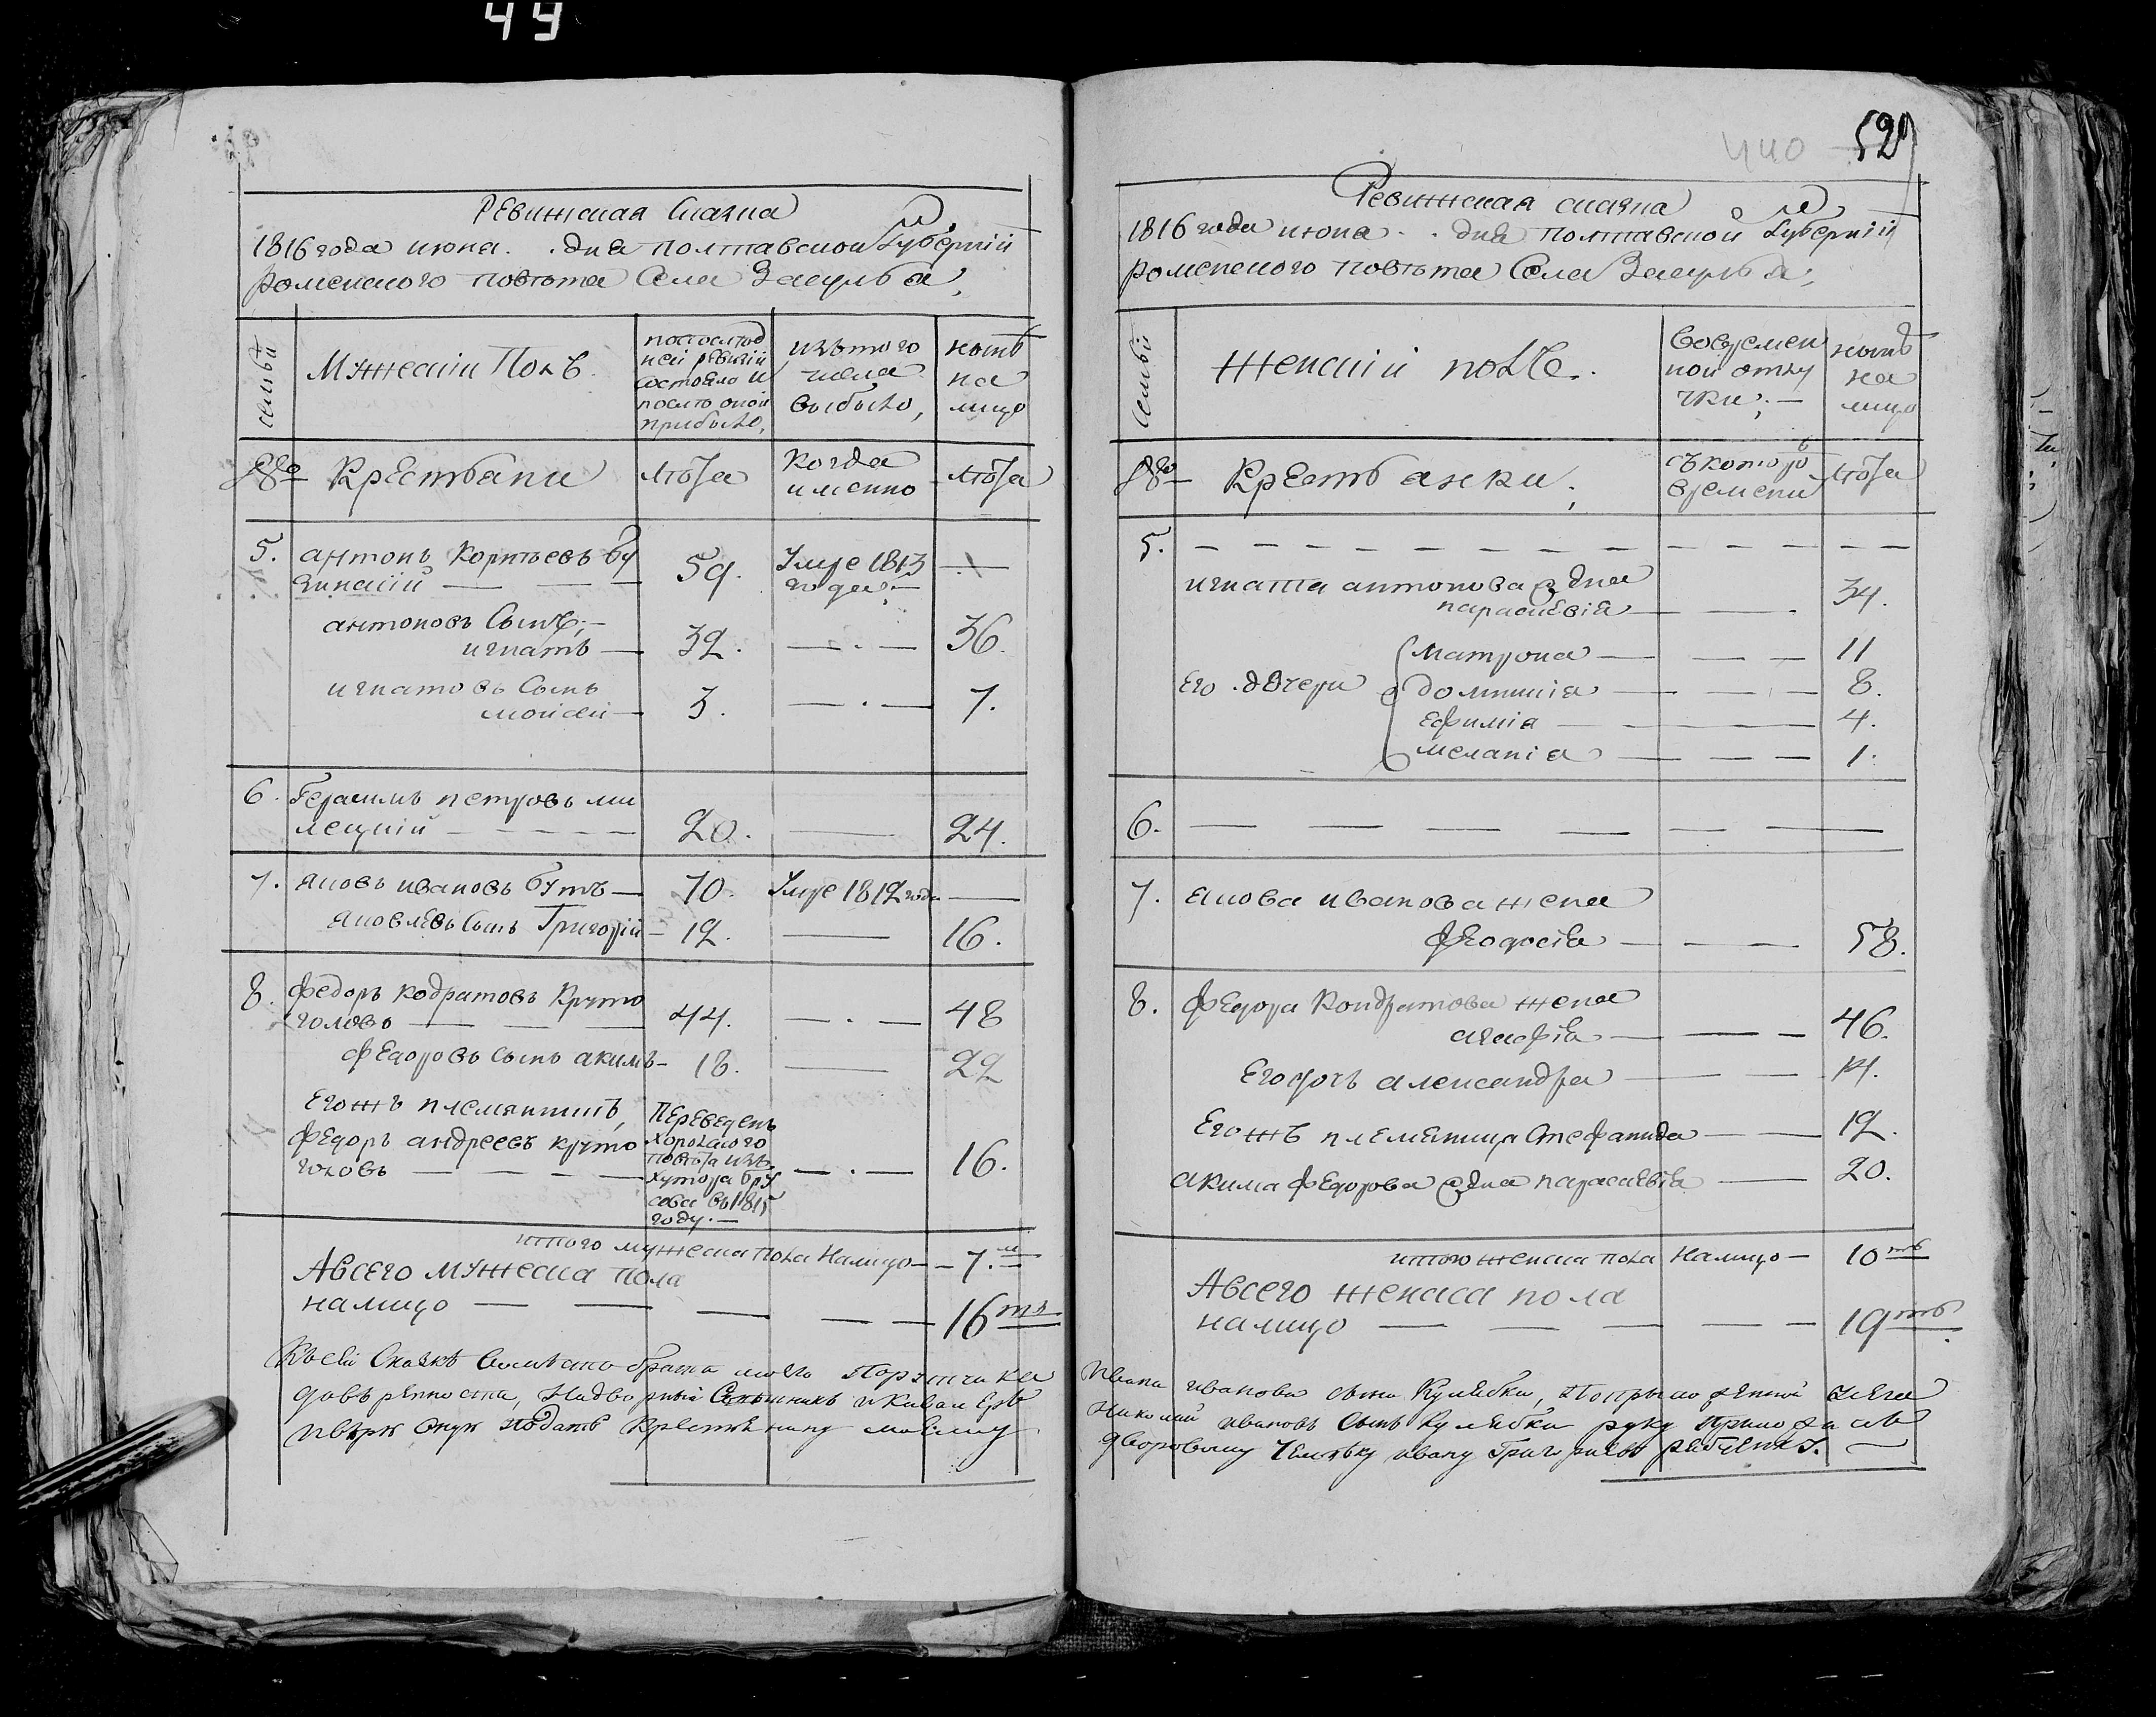 49
Ревижская сказка
1816 года июня . . дня полтавской Губернiи
роменского повѣта Села Засулья,
семьи
Мужескiй Полъ.
попослѣд
ней ревизiи
состояло и
послѣ оной
прибыло,
изъ того
числа
выбыло,
нынѣ
на
лицо
№
Крестьяни
лѣта
когда
именно
лѣта
5. антонъ корнѣевъ бу
59. Умре 1813
года
антоновъ Сынъ,
игнатъ — 32. — . — 36.
игнатовъ Сынъ
моисей — 3. — . — 7.
6. Герасимъ петровъ ми
лецкiй — 20. — 24.
7. яковъ ивановъ бутъ — 70. Умре 1812 года —
яковлевъ Сынъ Григорiй — 12. — 16.
8. федоръ кодратовъ Круто
головъ — 44. — . — 48
федоровъ сынъ акимъ — 18. — 22
Егожъ племянникъ,
федоръ андреевъ круто
головъ — — . — 16.
Переведенъ
хорольского
повѣта изъ
хутора бру
сова въ 1815
году. —
итого мужеска пола налицо — 7.
Авсего мужеска пола
налицо — 16 ть
Къ сей Сказкѣ вмѣсто брата моего Порутчика
довѣренности, Надворный Совѣтникъ и Кавалеръ
подать Крестьянину моему
440 52
Ревижская сказка
1816 года июня . . дня полтавской Губернiи
роменского повѣта Села Засулья,
семьи
женскiй полъ.
Вовремен
ной отлу
чки;
нынѣ
на
лицо
№
Крестьянки;
съ которо
времени
лѣта
5. — — —
игната антонова жена
параскевiя — 34.
Его дочери
матрона — 11
домникiя — 8.
ефимiя — 4.
меланiя — 1.
6. — — —
7. якова иванова жена
феодосiя — 58.
8. федора Кондратова жена
агафiя — 46.
Его дочь александра — 14.
Егожъ племяница Стефанида — 12.
акима федорова жена параскевiя — 20.
итого женска пола налицо — 10 ть
Авсего женска пола
налицо — 19 ть
Ивана иванова сына Кулябки, по данной Его
Николай ивановъ Сынъ Кулябка руку приложилъ
дворовому Человѣку ивану Григорiеву